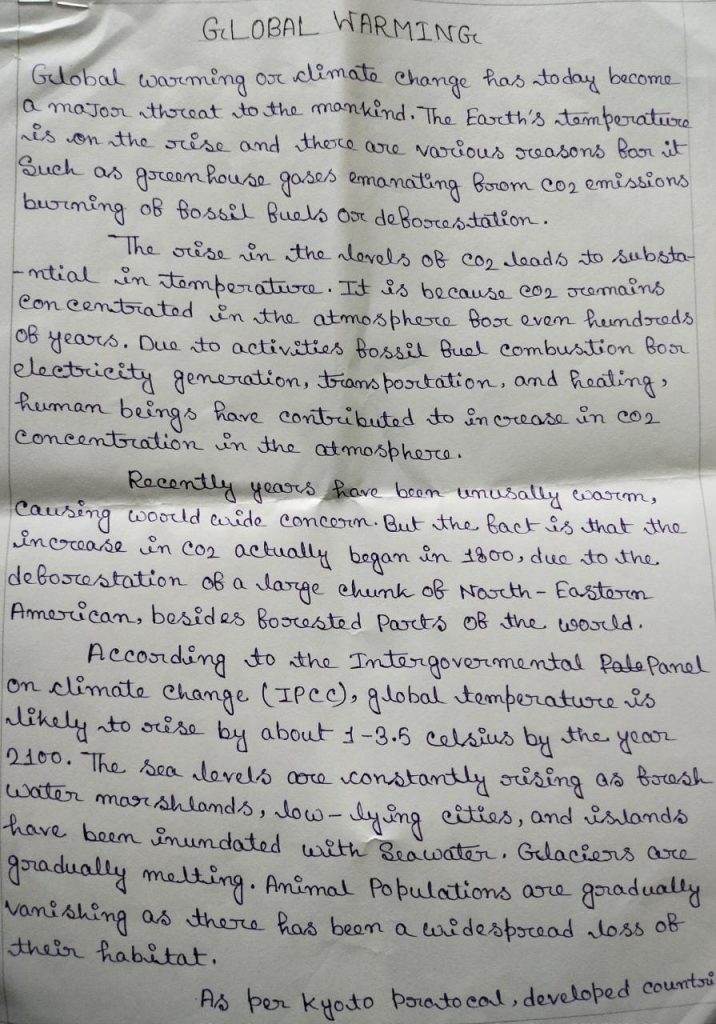 GLOBAL WARMING
Global warming or climate change has today become
a major threat to the mankind. The Earth's temperature
is on the rise and there are various reasons for it
Such as greenhouse gases emanating from CO2 emissions
burning of fossil fuels or deforestation.
The rise in the levels of CO2 leads to substa-
-ntial in temperature. It is because CO2 remains
concentrated in the atmosphere for even hundreds
of years. Due to activities fossil fuel combustion for
electricity generation, transportation, and heating,
human beings have contributed to increase in CO2
concentration in the atmosphere.
Recently years have been unusally warm,
causing world wide concern. But the fact is that the
increase in CO2 actually began in 1800, due to the
deforestation of a large chunk of North-Eastern
American, besides forested Parts of the world.
According to the Intergovermental Panel
on climate change (IPCC), global temperature is
likely to rise by about 1-3.5 celsius by the year
2100. The sea levels are constantly rising as fresh
water marshlands, low-lying cities, and islands
have been inundated with Seawater. Glaciers are
gradually melting. Animal Populations are gradually
vanishing as there has been a widespread loss of
their habitat.
As per Kyoto Protocal, developed countri